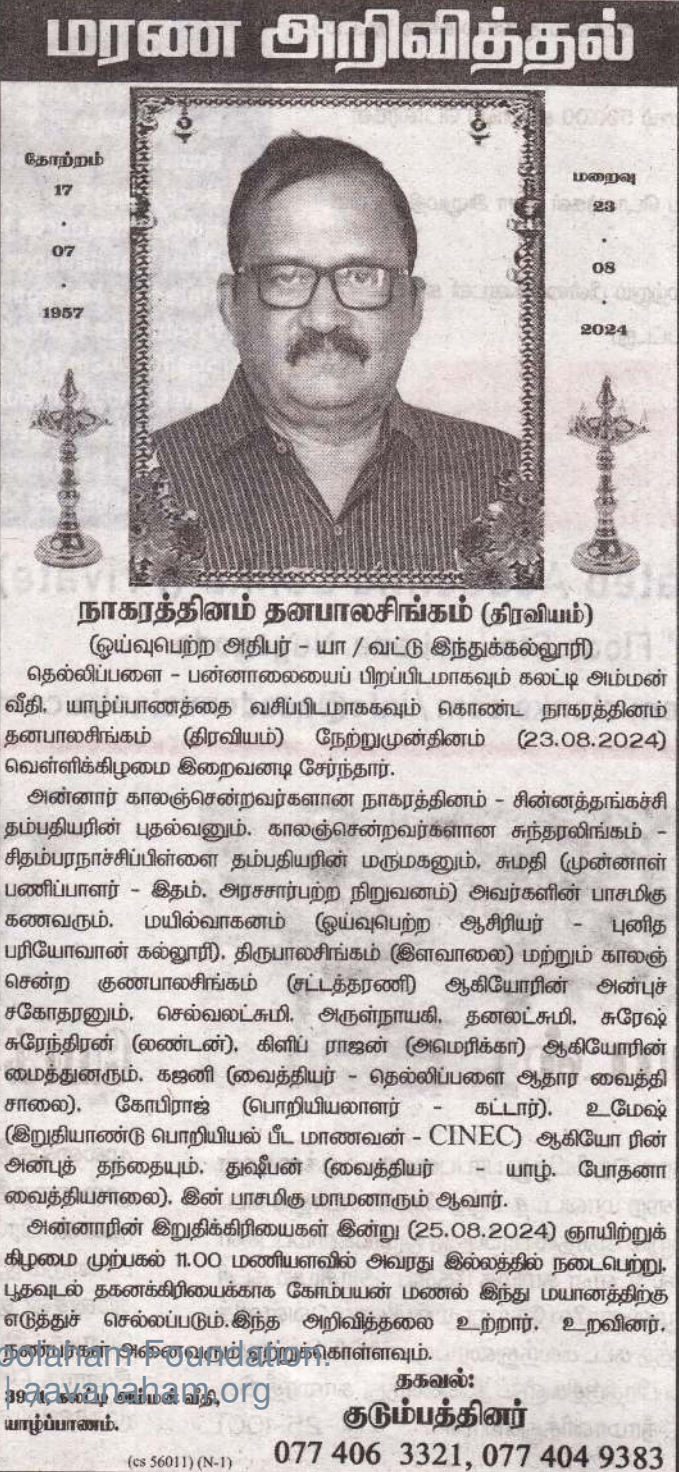 மரண அறிவித்தல்
தோற்றம்
17
.
07
.
1957
மறைவு
23
.
08
.
2024
நாகரத்தினம் தனபாலசிங்கம் (திரவியம்)
(ஓய்வுபெற்ற அதிபர் - யா / வட்டு இந்துக்கல்லூரி)
தெல்லிப்பளை - பன்னாலையைப் பிறப்பிடமாகவும் கலட்டி அம்மன்
வீதி, யாழ்ப்பாணத்தை வசிப்பிடமாககவும் கொண்ட நாகரத்தினம்
தனபாலசிங்கம் (திரவியம்) நேற்றுமுன்தினம் (23.08.2024)
வெள்ளிக்கிழமை இறைவனடி சேர்ந்தார்.
அன்னார் காலஞ்சென்றவர்களான நாகரத்தினம் - சின்னத்தங்கச்சி
தம்பதியரின் புதல்வனும், காலஞ்சென்றவர்களான சுந்தரலிங்கம் -
சிதம்பரநாச்சிப்பிள்ளை தம்பதியரின் மருமகனும், சுமதி (முன்னாள்
பணிப்பாளர் - இதம், அரசசார்பற்ற நிறுவனம்) அவர்களின் பாசமிகு
கணவரும், மயில்வாகனம் (ஓய்வுபெற்ற ஆசிரியர் - புனித
பரியோவான் கல்லூரி), திருபாலசிங்கம் (இளவாலை) மற்றும் காலஞ்
சென்ற குணபாலசிங்கம் (சட்டத்தரணி) ஆகியோரின் அன்புச்
சகோதரனும், செல்வலட்சுமி, அருள்நாயகி, தனலட்சுமி, சுரேஷ்
சுரேந்திரன் (லண்டன்), கிளிப் ராஜன் (அமெரிக்கா) ஆகியோரின்
மைத்துனரும், கஜனி (வைத்தியர் - தெல்லிப்பளை ஆதார வைத்தி
சாலை), கோபிராஜ் (பொறியியலாளர் - கட்டார்), உமேஷ்
(இறுதியாண்டு பொறியியல் பீட மாணவன் - CINEC) ஆகியோ ரின்
அன்புத் தந்தையும், துஷீபன் (வைத்தியர் - யாழ். போதனா
வைத்தியசாலை), இன் பாசமிகு மாமனாரும் ஆவார்.
அன்னாரின் இறுதிக்கிரியைகள் இன்று (25.08.2024) ஞாயிற்றுக்
கிழமை முற்பகல் 11.00 மணியளவில் அவரது இல்லத்தில் நடைபெற்று,
பூதவுடல் தகனக்கிரியைக்காக கோம்பயன் மணல் இந்து மயானத்திற்கு
எடுத்துச் செல்லப்படும்.இந்த அறிவித்தலை உற்றார், உறவினர்,
நண்பர்கள் அனைவரும் ஏற்றுக்கொள்ளவும்.
oolaham Foundation.
aavanaham.org
கலட்டி அம்மன் வீதி,
யாழ்ப்பாணம்.
தகவல்:
குடும்பத்தினர்
077 406 3321, 077 404 9383
(cs 56011) (N-1)